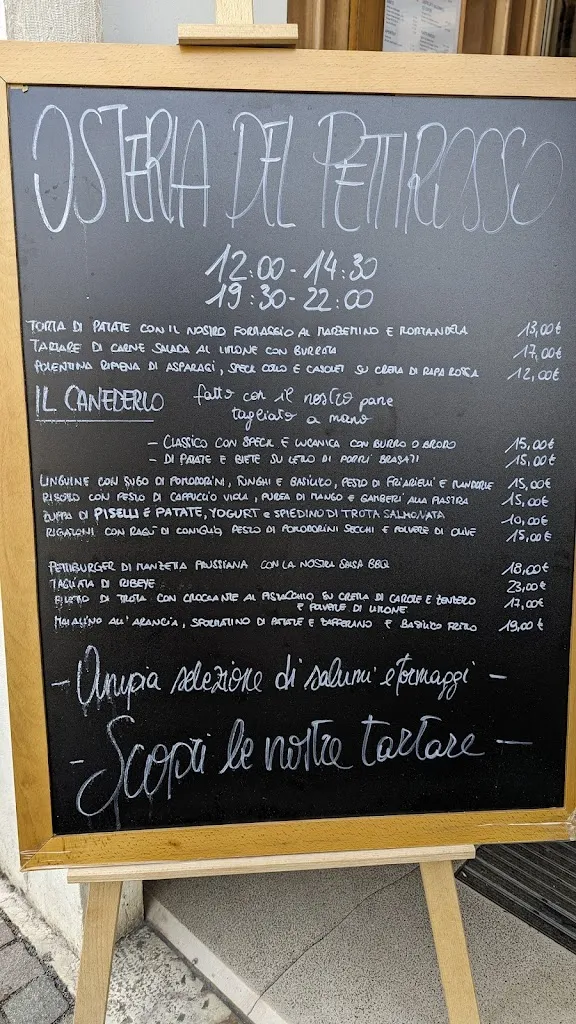 OSTERIA DEL PETTIROSSO
12:00 - 14:30
19:30 - 22:00
TORTA DI PATATE CON IL NOSTRO FORMAGGIO AL MARZEMINO E MORTANDELA 13,00€
TARTARE DI CARNE SALADA AL LIMONE CON BURRATA 17,00€
POLENTINA RIPIENA DI ASPARAGI, SPECK COTTO E CASOLET SU CREMA DI RAPA ROSSA 12,00€
IL CANEDERLO fatto con il nostro pane
tagliato a mano
- CLASSICO CON SPECK E LUCANICA CON BURRO O BRODO 15,00€
- DI PATATE E BIETE SU LETTO DI PORRI BRASATI 15,00€
LINGUINE CON SUGO DI POMODORINI, FUNGHI E BASILICO, PESTO DI FRIARIELLI E MANDORLE 15,00€
RISOTTO CON PESTO DI CAPPUCCIO VIOLA, PUREA DI MANGO E GAMBERI ALLA PIASTRA 15,00€
ZUPPA DI PISELLI E PATATE, YOGURT e SPIEDINO DI TROTA SALMONATA 10,00€
RIGATONI CON RAGÙ DI CONIGLIO, PESTO DI POMODORINI SECCHI E POLVERE DI OLIVE 15,00€
PETTIBURGER DI MANZETTA PRUSSIANA CON LA NOSTRA SALSA BBQ 18,00€
TAGLIATA DI RIBEYE 23,00€
FILETTO DI TROTA CON CROCCANTE AL PISTACCHIO SU CREMA DI CAROTE E ZENZERO 17,00€
E POLVERE DI LIMONE
MAIALINO ALL'ARANCIA, SFORMATINO DI PATATE E ZAFFERANO E BASILICO FRITTO 19,00€
- Ampia selezione di salumi e formaggi -
- Scopri le nostre tartare -